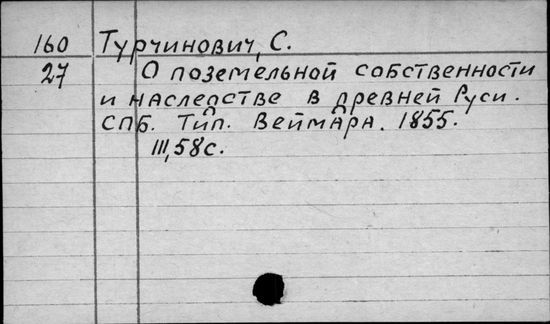 160 Турчинович, С.
27 О поземельной собственности
и наследстве в древней Руси.
СПБ. Тип. Веймара. 1855.
III, 58 с.